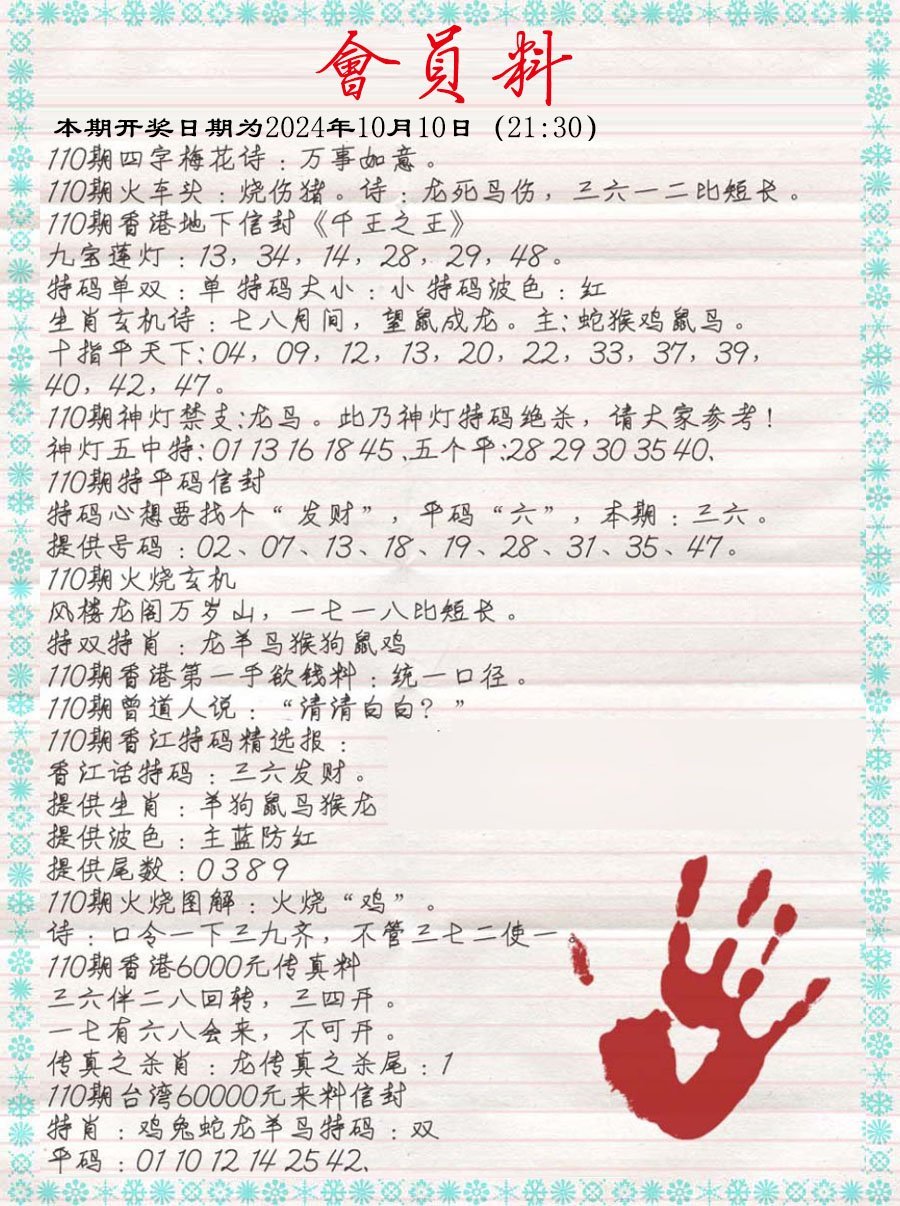 會員料
本期开奖日期为2024年10月10日（21:30）
110期四字梅花诗：万事如意。
110期火车头：烧伤猪。诗：龙死马伤，三六一二比短长。
110期香港地下信封《千王之王》
九宝莲灯：13，34，14，28，29，48。
特码单双：单 特码大小：小 特码波色：红
生肖玄机诗：七八月间，望鼠成龙。主:蛇猴鸡鼠马。
十指平天下:04，09，12，13，20，22，33，37，39，
40，42，47。
110期神灯禁支:龙马。此乃神灯特码绝杀，请大家参考！
神灯五中特:01 13 16 18 45、五个平:28 29 30 35 40、
110期特平码信封
特码心想要找个“发财”，平码“六”，本期：三六。
提供号码：02、07、13、18、19、28、31、35、47。
110期火烧玄机
风楼龙阁万岁山，一七一八比短长。
特双特肖：龙羊马猴狗鼠鸡
110期香港第一手欲钱料：统一口径。
110期曾道人说：“清清白白？”
110期香江特码精选报：
香江话特码：三六发财。
提供生肖：羊狗鼠马猴龙
提供波色：主蓝防红
提供尾数：0 3 8 9
110期火烧图解：火烧“鸡”。
诗：口令一下三九齐，不管三七二使一。
110期香港6000元传真料
三六伴二八回转，三四开。
一七有六八会来，不可开。
传真之杀肖：龙传真之杀尾：1
110期台湾60000元来料信封
特肖：鸡兔蛇龙羊马特码：双
平码：01 10 12 14 25 42、